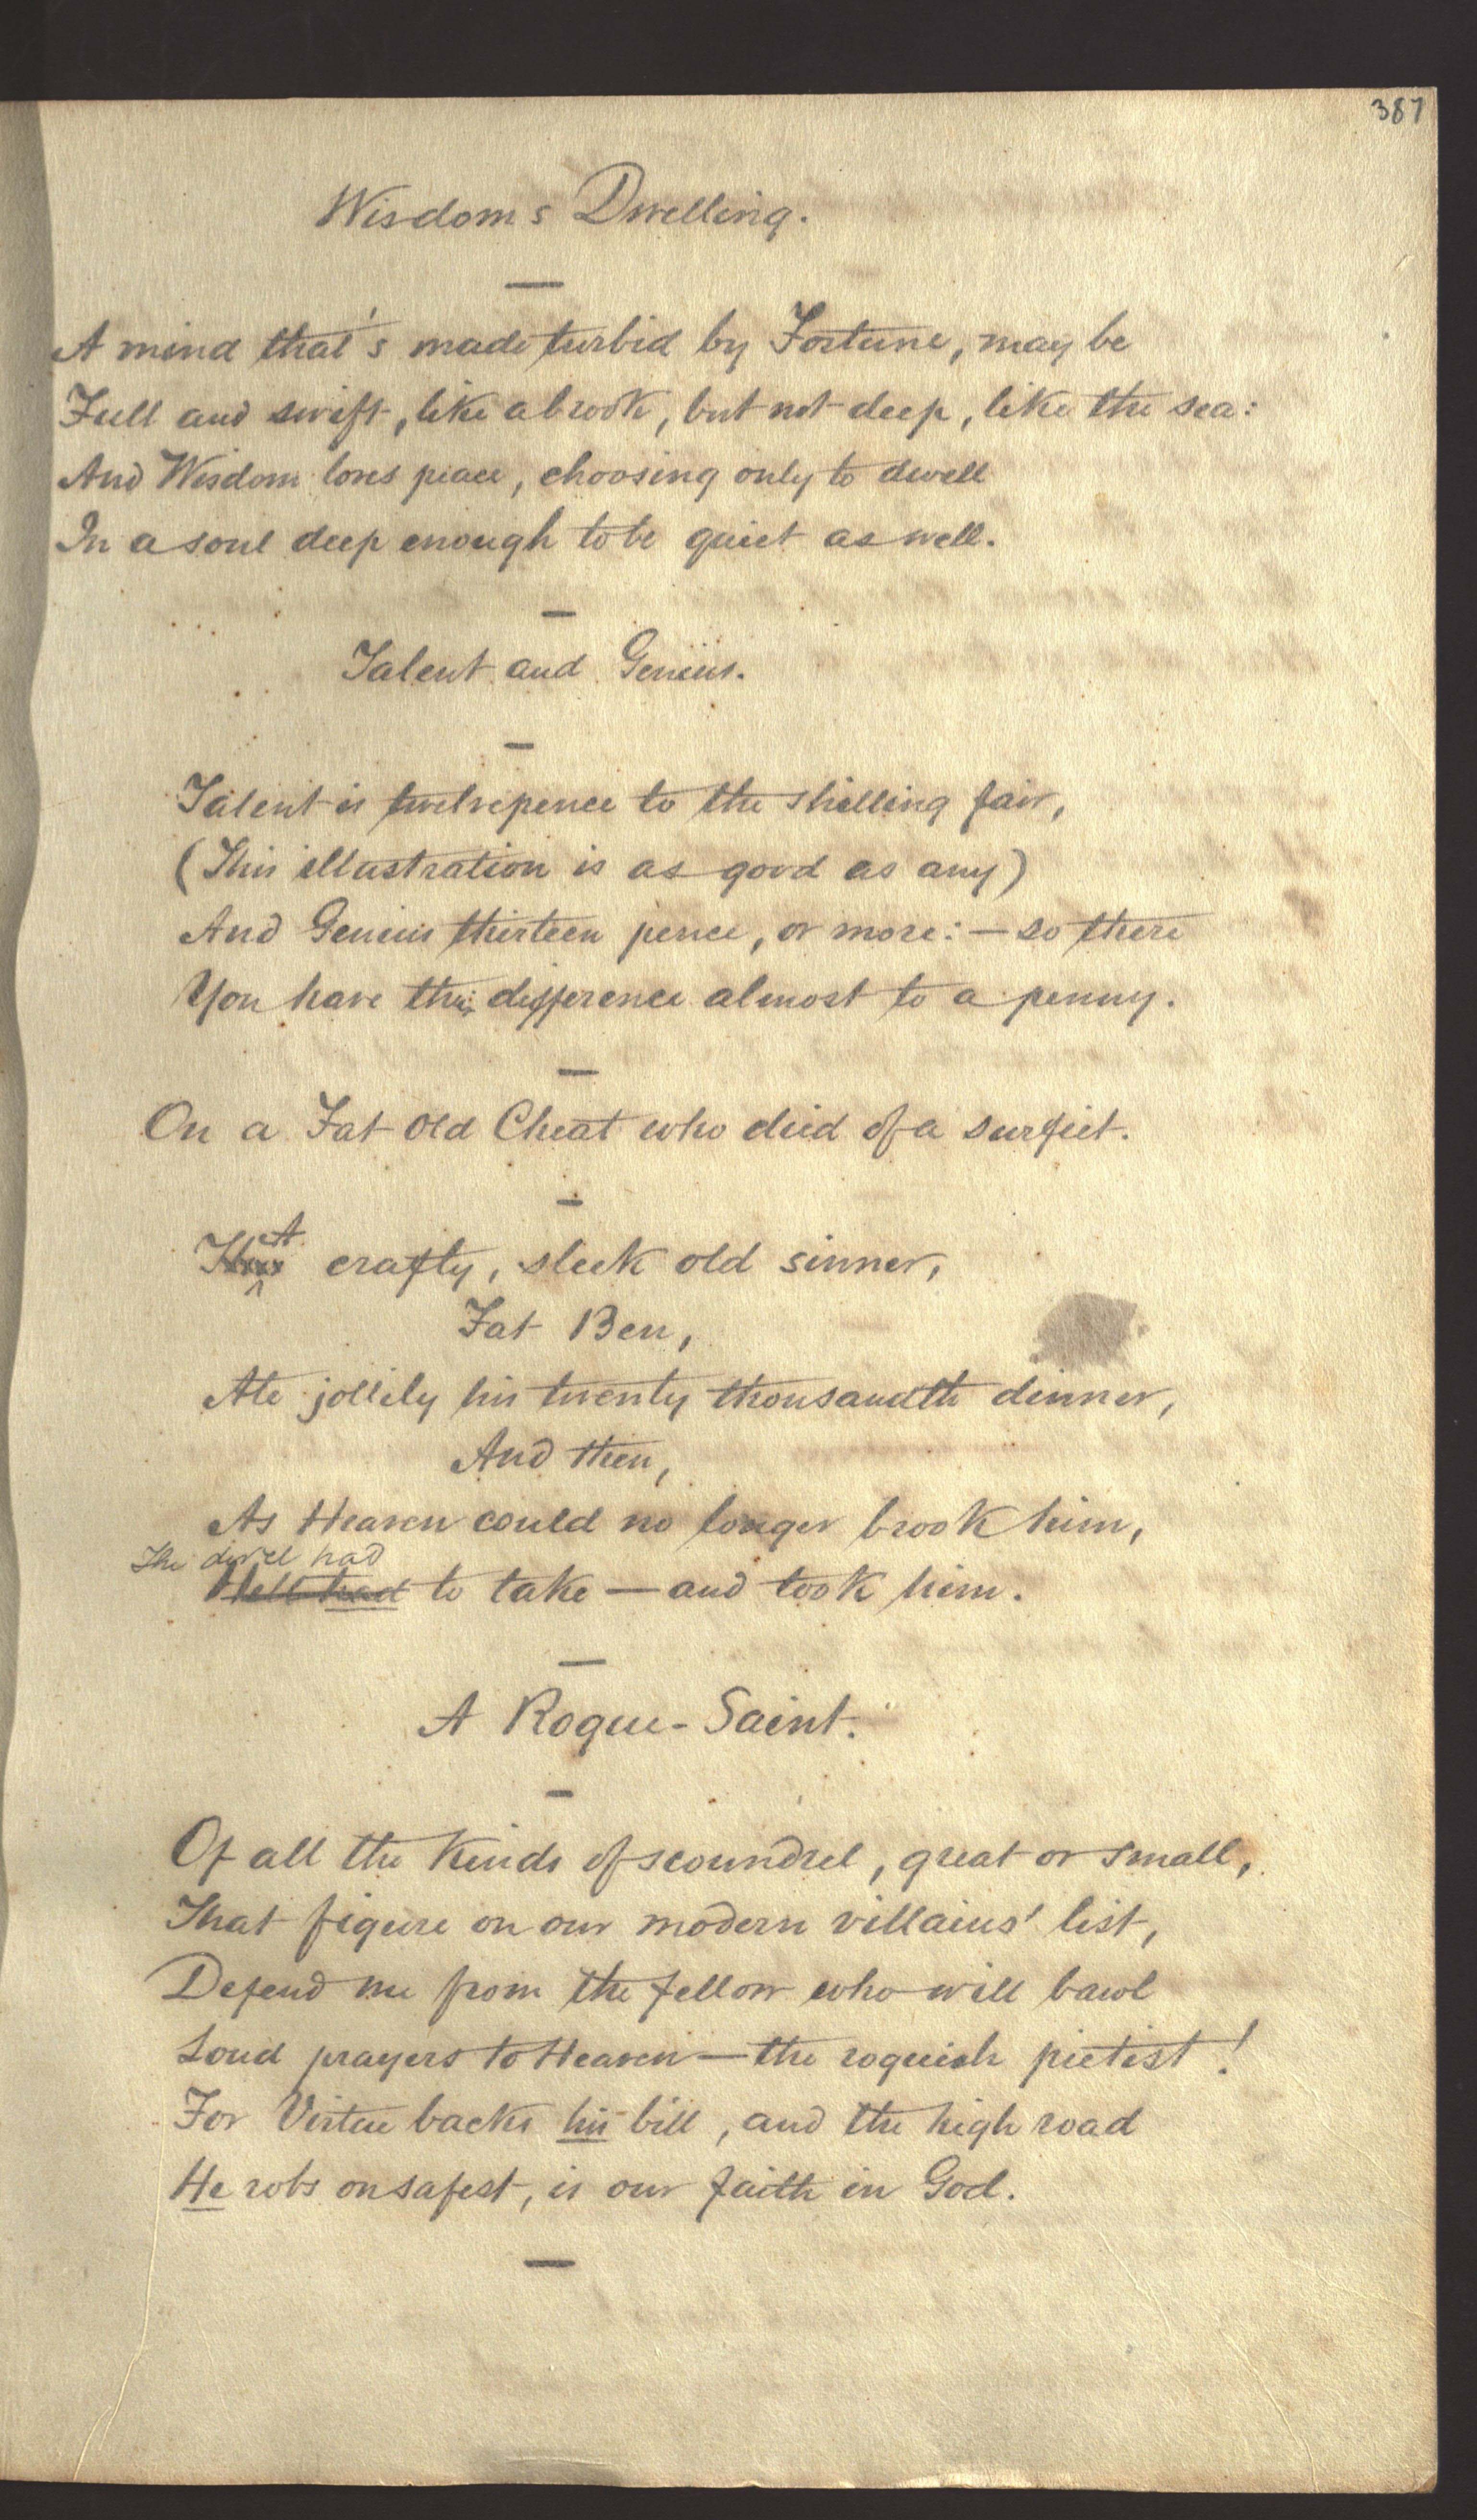 387
Wisdom's Dwelling.
A mind that's made turbid by Fortune, may be
Full and swift, like a brook, but not deep, like the sea:
And Wisdom loves peace, choosing only to dwell
In a soul deep enough to be quiet as well.
Talent and Genius.
Talent is twelvepence to the shilling fair,
(This illustration is as good as any)
And Genius thirteen pence, or more: — so there
You have the difference almost to a penny.
On a Fat old Cheat who died of a surfeit.
A
crafty, sleek old sinner,
Fat Ben,
Ate jollily his twenty thousandth dinner,
And then,
As Heaven could no longer brook him,
The devil had
Hell had to take — and took him.
A Rogue-Saint.
Of all the kinds of scoundrel, great or small,
That figure on our modern villains' list,
Defend me from the fellow who will bawl
Loud prayers to Heaven — the roguish pietist!
For Virtue backs his bill, and the high road
He robs on safest, is our faith in God.